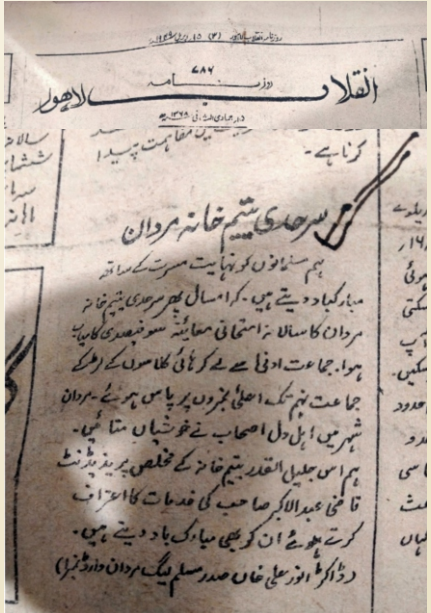 روزنامہ انقلاب لاہور (۴) ۱۵
۷۸۶
روزنامہ
انقلاب لاہور
مفاہمت پیدا
کرنا ہے۔
سرحدی یتیم خانہ مردان
ہم مسلمانوں کو نہایت مسرت کے ساتھ
مبارکباد دیتے ہیں۔ کہ امسال پھر سرحدی یتیم خانہ
مردان کا سالانہ امتحانی معائینہ سو فیصدی کامیاب
ہوا۔ جماعت ادنیٰ سے لے کر ہائی کلاسوں کے لڑکے
جماعت نہم تک اعلیٰ نمبروں پر پاس ہوئے۔ مردان
شہر میں اہل دل اصحاب نے خوشیاں منائیں۔
ہم اس جلیل القدر یتیم خانہ کے مخلص پریذیڈنٹ
قاضی عبدالاکبر صاحب کی خدمات کا اعتراف
کرتے ہوئے ان کو بھی مبارکباد دیتے ہیں۔
(ڈاکٹر انور علی خاں صدر مسلم لیگ مردان وارڈ نمبر۱)